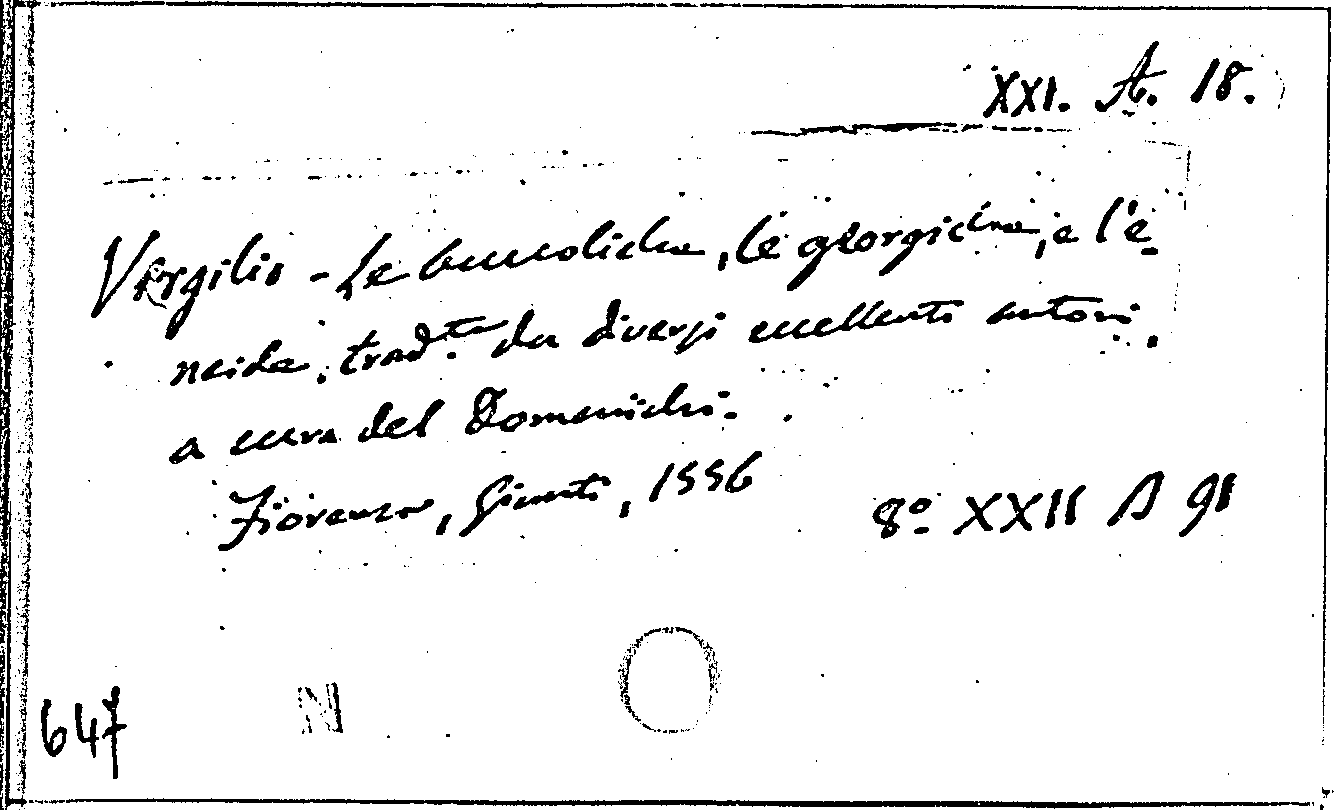 XXI. A. 18.
Vergilio - Le buccoliche, le georgiche, e l'e-
neida, trad.te da diversi eccellenti autori,
a cura del Domenichi.
Fiorenza, Giunti, 1556
8º XXII A 91
647
N